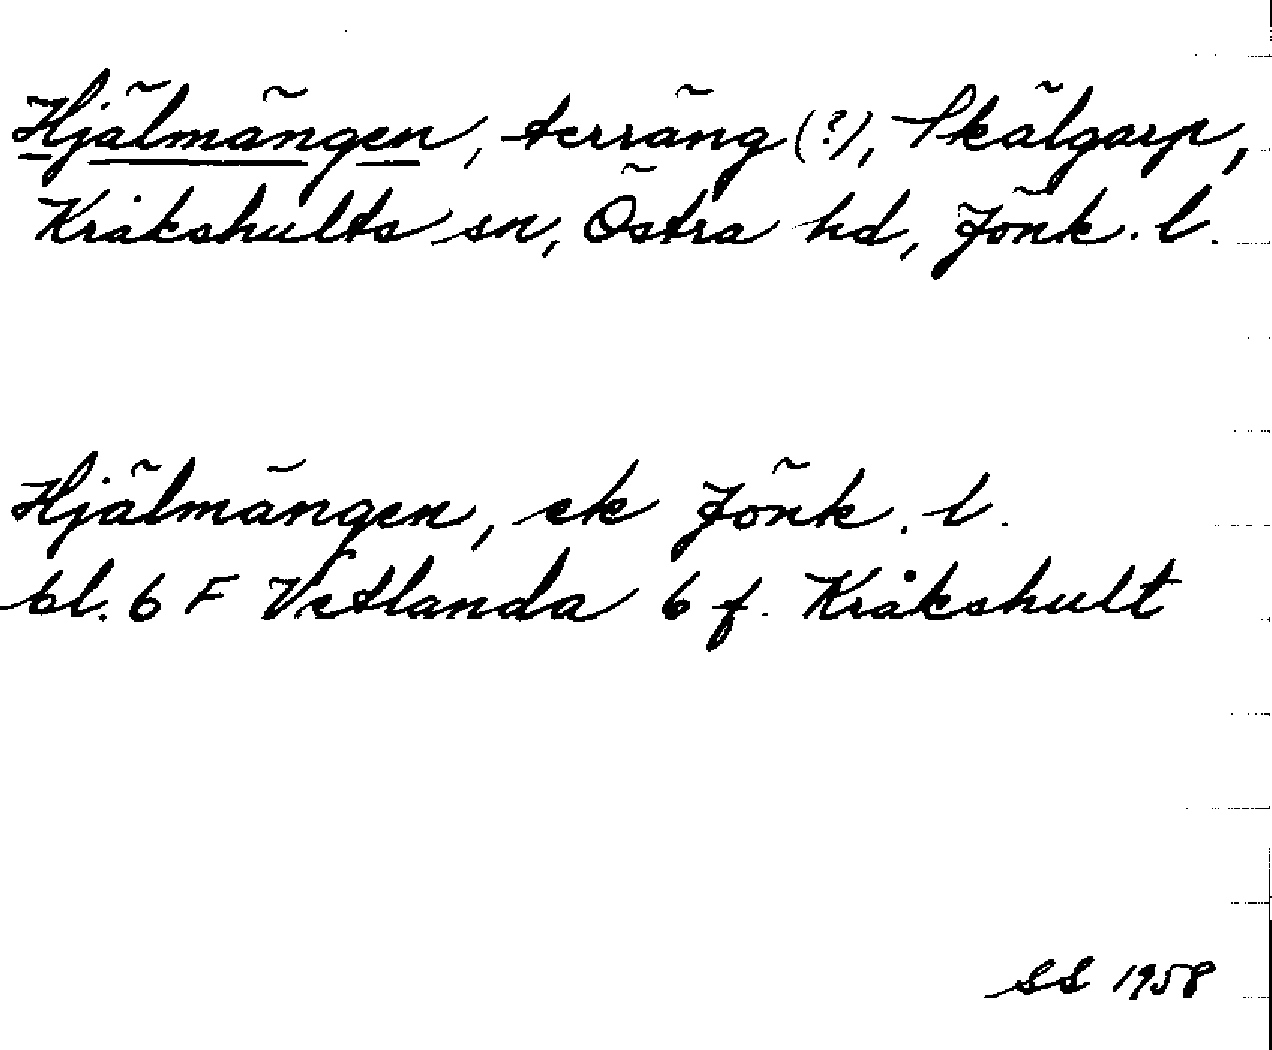 Hjälmängen, terräng (?), Skälgarp,
Kråkshults sn, Östra hd, Jönk. l.
Hjälmängen, ek Jönk. l.
bl. 6 F Vetlanda 6 f. Kråkshult
SS 1958